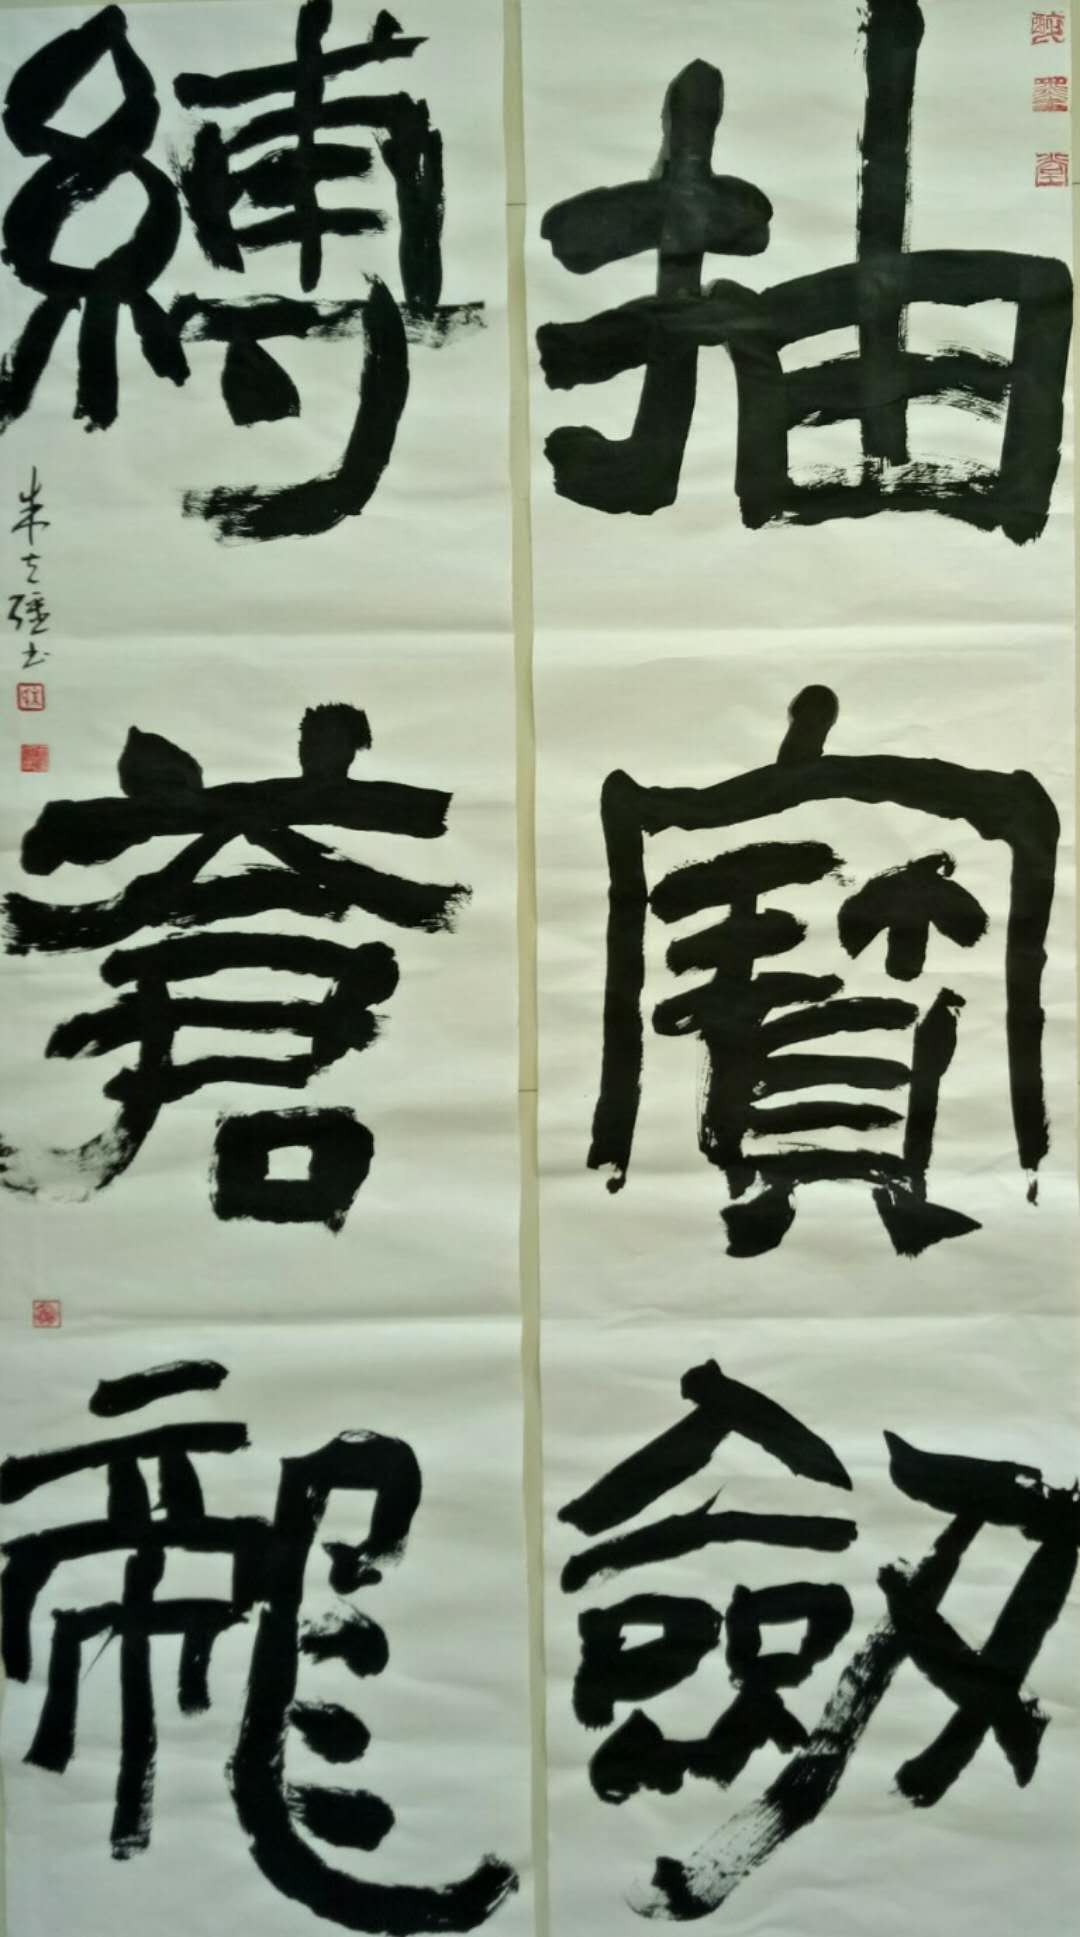 抽寶劍
縛蒼龍
朱之強書